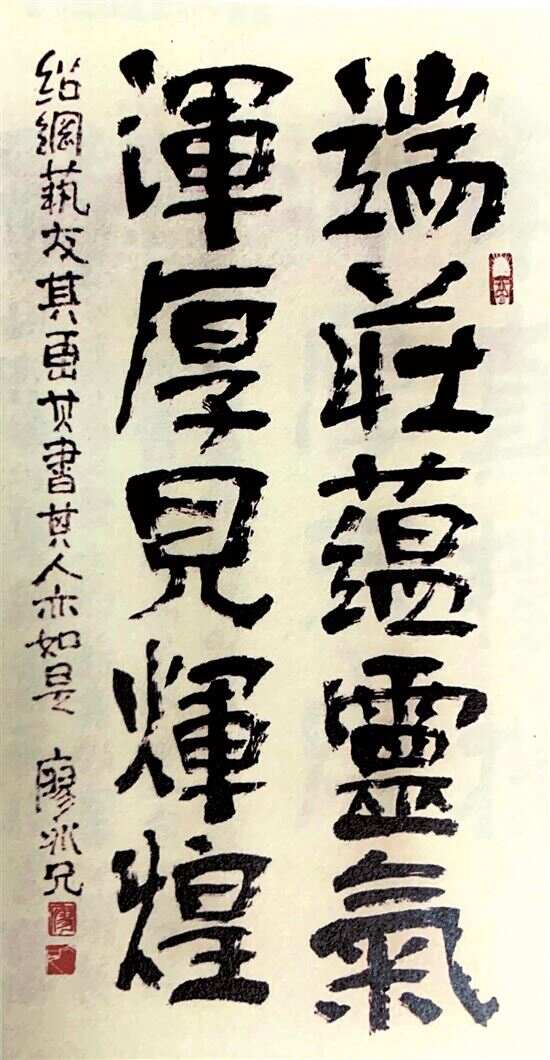 端莊蘊靈氣
渾厚見輝煌
紹鋼藝友其画其書其人亦如是 廖冰兄